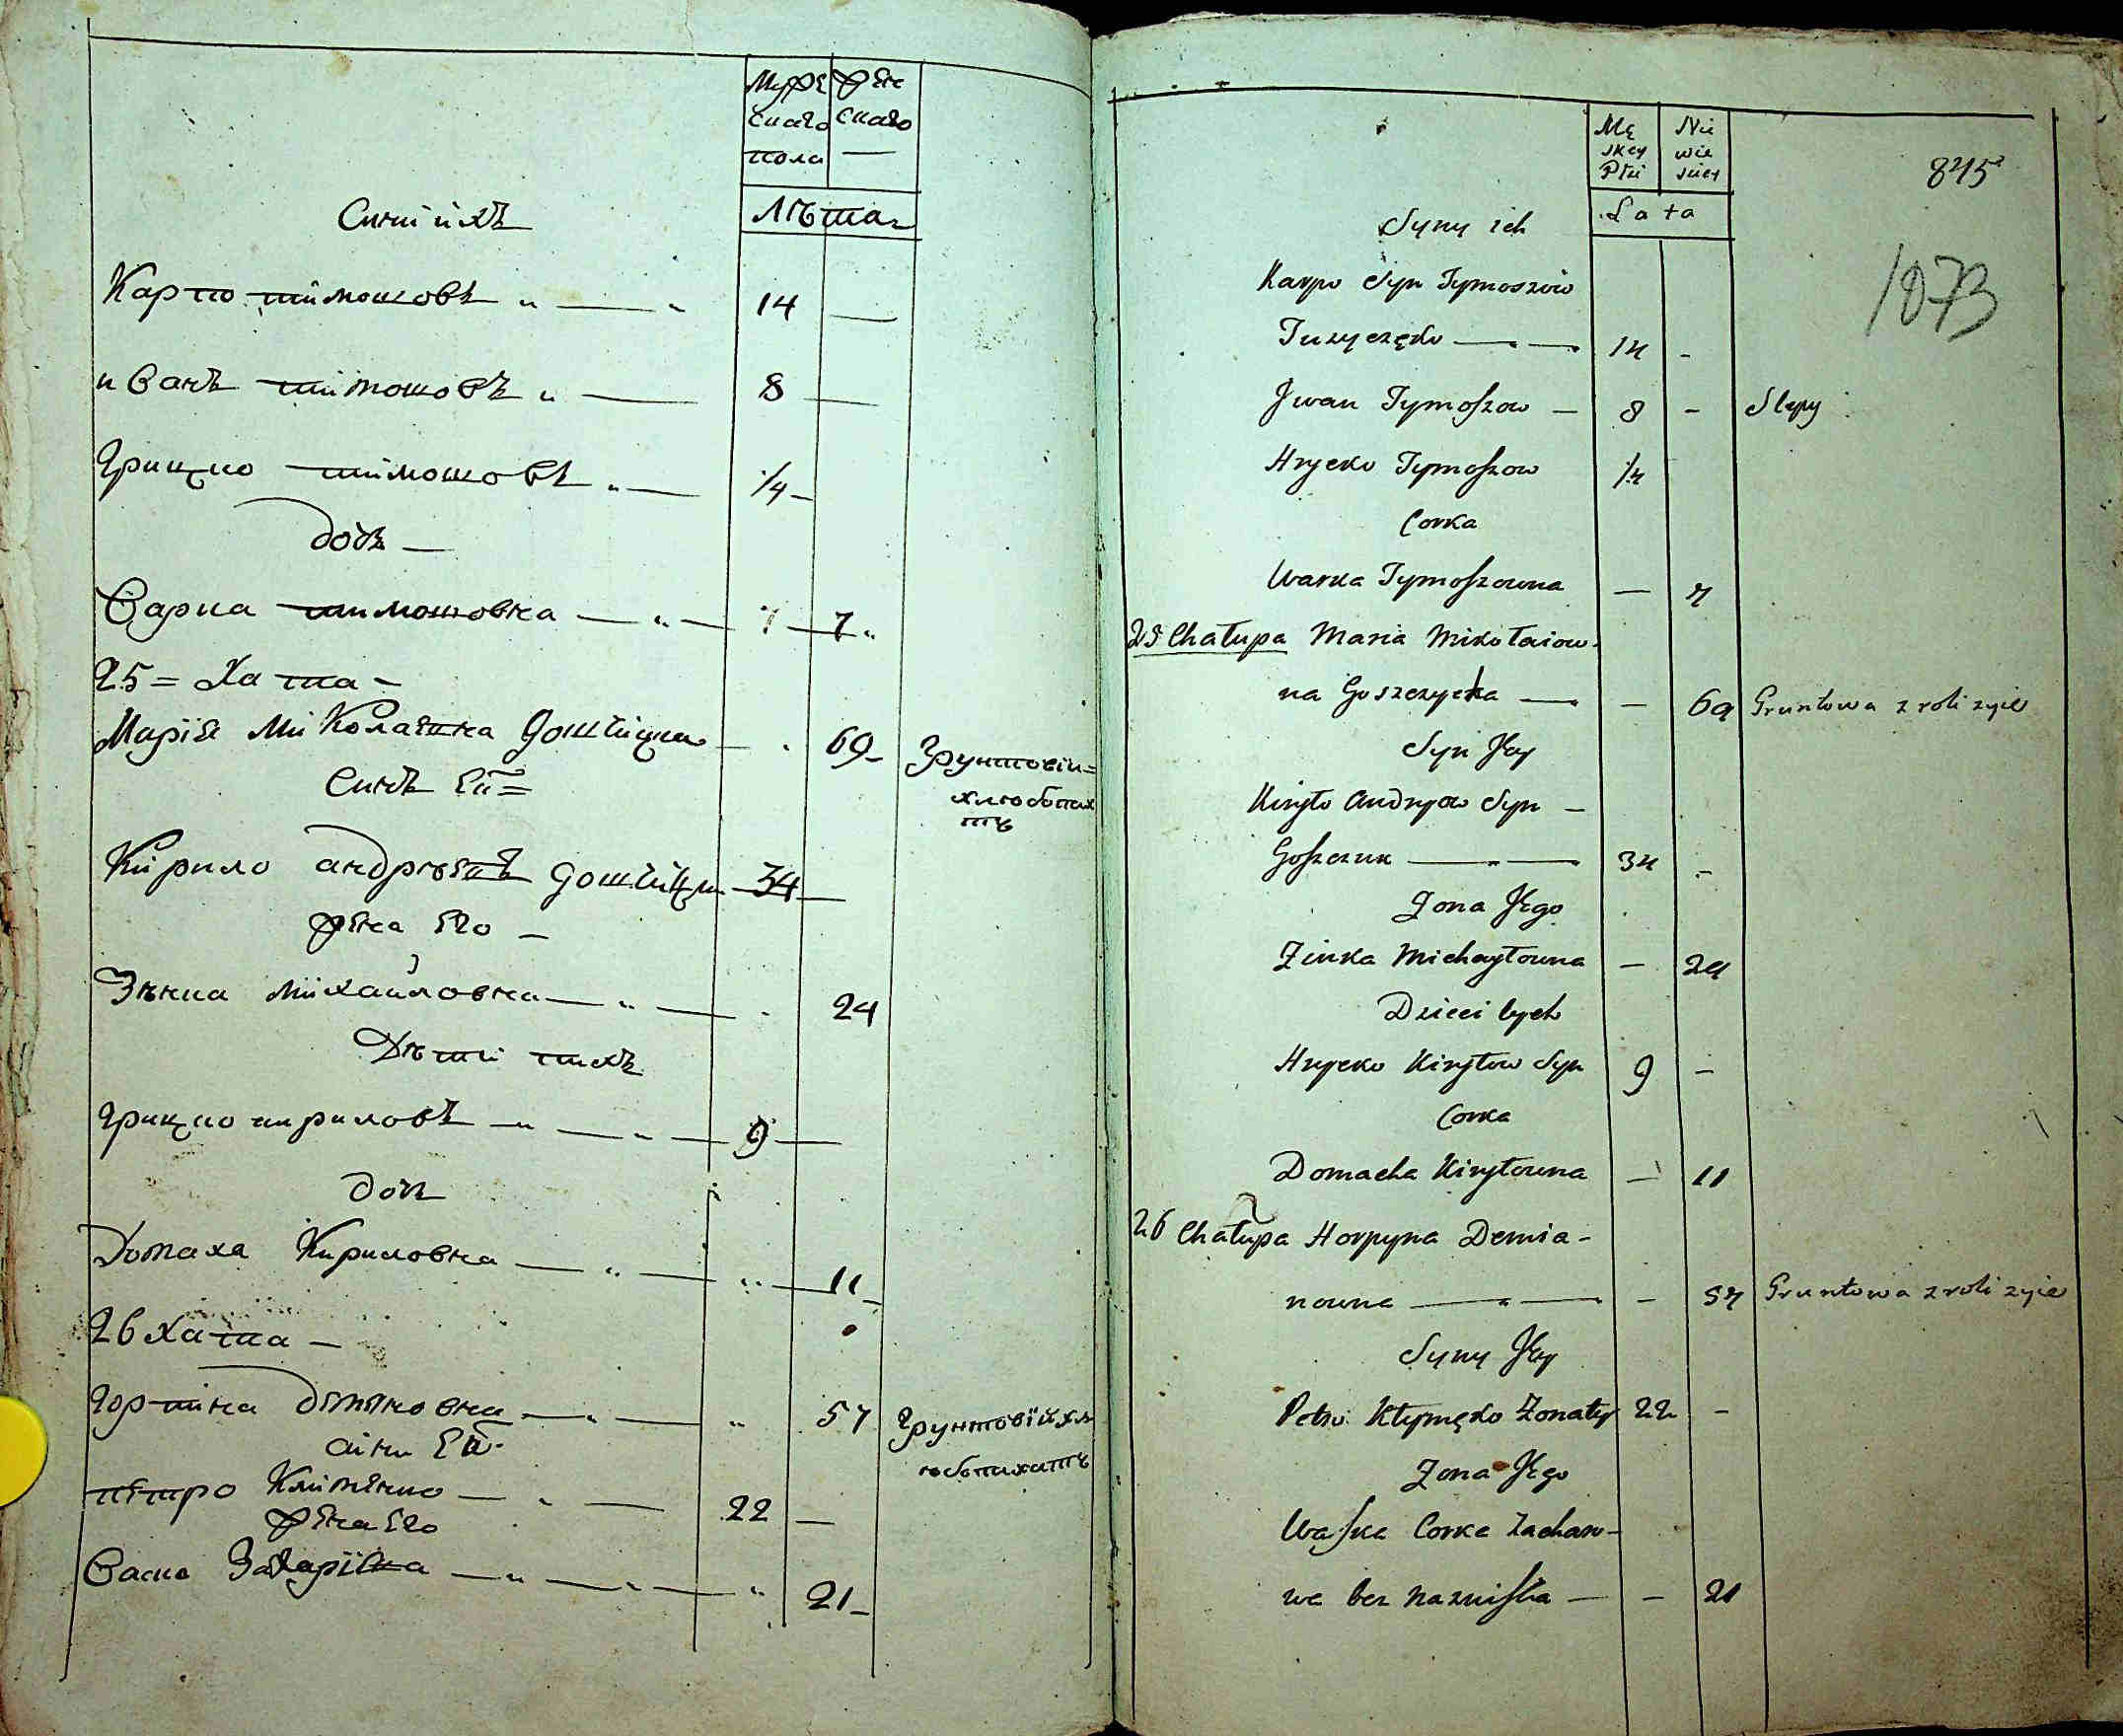 Муже
скаго
пола
жен
скаго
Лѣта
Сини ихъ
Карпо тимошовъ 14
иванъ тимошовъ 8
Грицко тимошовъ 1/4
дочь
Варка тимошовна 7
25 = Хата
Марія Миколаевна Гошицка 69 Грунтовій
хлѣбопах
тъ
Синъ Ей
Кирило андрѣевъ 34
жена Его
Зѣнка михайловна 24
Дѣти тихъ
Грицко кириловъ 9
дочь
Домаха Кириловна 11
26 хата
Горпина демяновна 57 Грунтовій
Сини Ей
петро Клименко 22
жена Его
Васка Захаріевна 21
Mę
skey
Płci
Nie
wie
sciey
845
Lata
1073
Syny ich
Karpo Syn Tymoszow
14 -
Jwan Tymoszow - 8 - Slepy
Hrycko Tymoszow 1/4
Corka
Warka Tymoszowna - 7
25 Chałupa Maria Mikołaiow-
na Goszczycka - 69 Gruntowa z roli zyie
Syn Jey
Kiryło Andryow Syn -
Goszczuk 34 -
Zona Jego
Zinka Michayłowna - 24
Dzieci tych
Hrycko Kiryłow Syn 9 -
Corka
Domacha Kiryłowna - 11
26 Chałupa Horpyna Demia-
nowna - 57 Gruntowa z roli zyie
Syny Jey
Petro Kłymęko Zonaty 22 -
Zona Jego
Waska Corka Zacharo-
wa bez nazwiska - 21